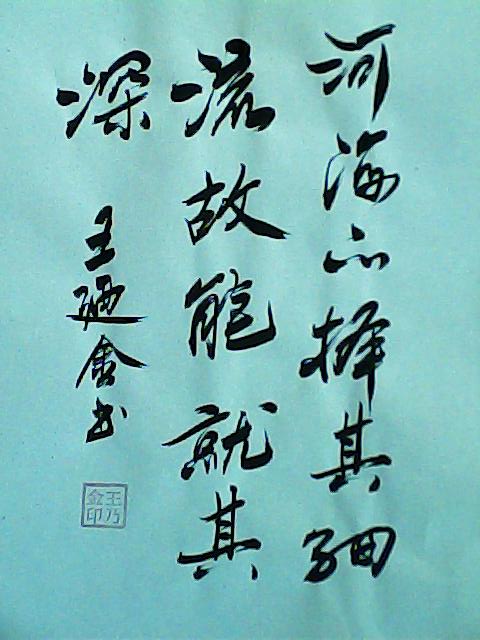 河海不择其细
流故能就其
深
王廼金书
王乃金印